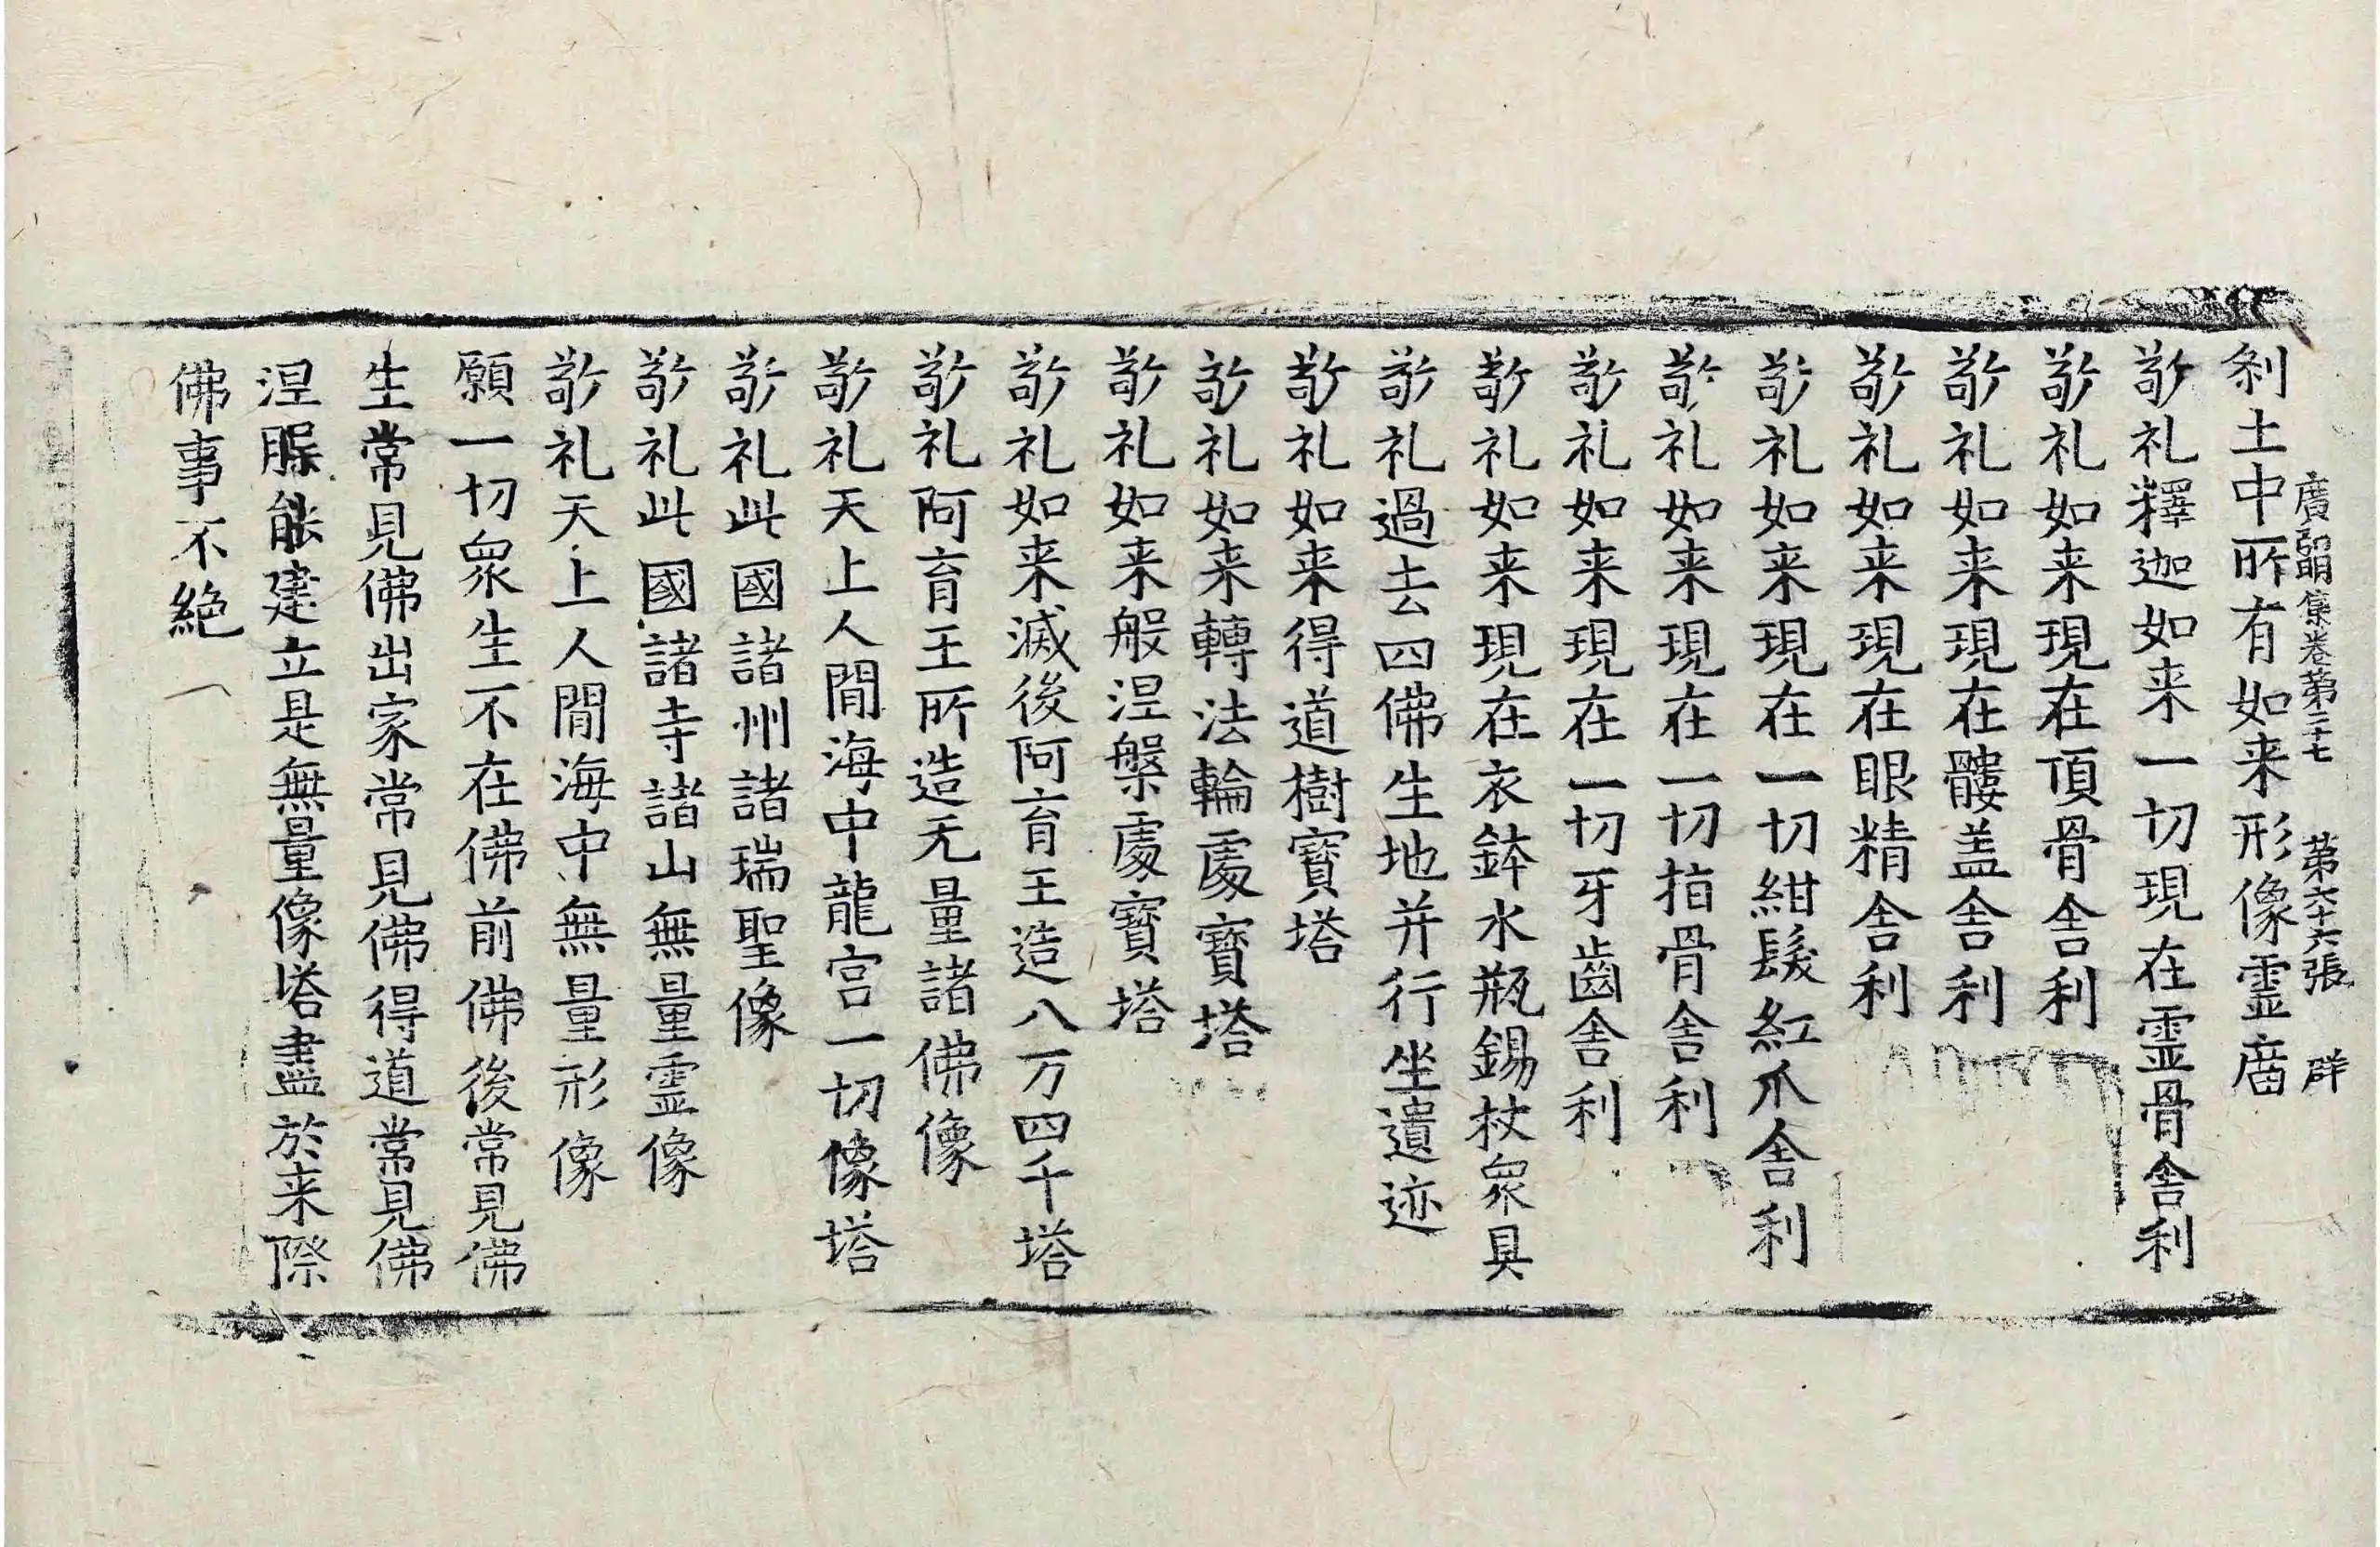 廣弘明集卷第二十七　第六十六張　群
刹土中所有如来形像霊庿
敬礼釋迦如来一切現在霊骨舎利
敬礼如来現在頂骨舎利
敬礼如来現在髏盖舎利
敬礼如来現在眼精舎利
敬礼如来現在一切紺髮紅爪舎利
敬礼如来現在一切指骨舎利
敬礼如来現在一切牙齒舎利
敬礼如来現在衣鉢水瓶錫杖衆具
敬礼過去四佛生地并行坐遺迹
敬礼如来得道樹寳塔
敬礼如来轉法輪處寳塔
敬礼如来般涅槃處寳塔
敬礼如来滅後阿育王造八万四千塔
敬礼阿育王所造无量諸佛像
敬礼天上人間海中龍宫一切像塔
敬礼此國諸州諸瑞聖像
敬礼此國諸寺諸山無量霊像
敬礼天上人間海中無量形像
願一切衆生不在佛前佛後常見佛
生常見佛出家常見佛得道常見佛
涅槃能建立是無量像塔盡於来際
佛事不絶